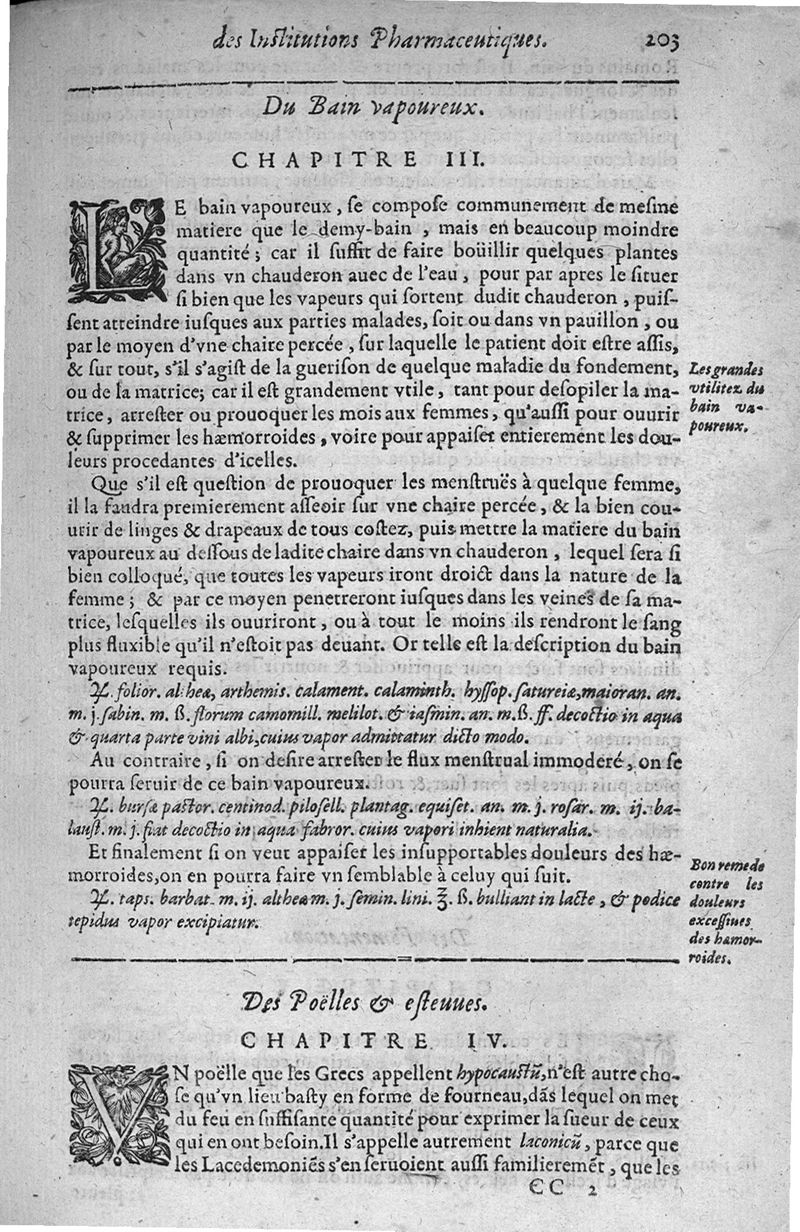 des Inſtitutions Pharmaceutiques. 203
Du Bain vapoureux.
CHAPITRE III.
LE bain vapoureux, ſe compoſe communement de meſme
matiere que le demy-bain, mais en beaucoup moindre
quantité; car il ſuffit de faire boüillir quelques plantes
dans vn chauderon auec de l'eau, pour par apres le ſituer
ſi bien que les vapeurs qui ſortent dudit chauderon, puiſ-
ſent atteindre iuſques aux parties malades, ſoit ou dans vn pauillon, ou
par le moyen d'vne chaire percée, ſur laquelle le patient doit eſtre aſſis,
& ſur tout, s'il s'agiſt de la gueriſon de quelque maladie du fondement,
ou de la matrice; car il eſt grandement vtile, tant pour deſopiler la ma-
trice, arreſter ou prouoquer les mois aux femmes, qu'auſſi pour ouurir
& ſupprimer les hæmorroides, voire pour appaiſer entierement les dou-
leurs procedantes d'icelles.
Les grandes
vtilitez du
bain va-
poureux.
Que s'il eſt queſtion de prouoquer les menſtruës à quelque femme,
il la faudra premierement aſſeoir ſur vne chaire percée, & la bien cou-
urir de linges & drapeaux de tous coſtez, puis mettre la matiere du bain
vapoureux au deſſous de ladite chaire dans vn chauderon, lequel ſera ſi
bien colloqué, que toutes les vapeurs iront droict dans la nature de la
femme; & par ce moyen penetreront iuſques dans les veines de ſa ma-
trice, leſquelles ils ouuriront, ou à tout le moins ils rendront le ſang
plus fluxible qu'il n'eſtoit pas deuant. Or telle eſt la deſcription du bain
vapoureux requis.
℞. folior. altheæ, arthemis. calament. calaminth. hyſſop. ſatureiæ, maioran. an.
m. j. ſabin. m. ß. florum camomill. melilot. & iaſmin. an. m. ß. ff. decoctio in aqua
& quarta parte vini albi, cuius vapor admittatur dicto modo.
Au contraire, ſi on deſire arreſter le flux menſtrual immoderé, on ſe
pourra ſeruir de ce bain vapoureux.
℞. burſæ paſtor. centinod. piloſell. plantag. equiſet. an. m. j. roſar. m. ij. ba-
lauſt. m. j. fiat decoctio in aqua fabror. cuius vapori inhient naturalia.
Et finalement ſi on veut appaiſer les inſupportables douleurs des hæ-
morroides, on en pourra faire vn ſemblable à celuy qui ſuit.
℞. taps. barbat. m. ij. altheæ m. j. ſemin. lini. ʒ. ß. bulliant in lacte, & podice
tepidus vapor excipiatur.
Bon remede
contre les
douleurs
exceſſiues
des hæmor-
roides.
Des Poëlles & eſteuues.
CHAPITRE IV.
VN poëlle que les Grecs appellent hypocauſtũ, n'eſt autre cho-
ſe qu'vn lieu baſty en forme de fourneau, dãs lequel on met
du feu en ſuffiſante quantité pour exprimer la ſueur de ceux
qui en ont beſoin. Il s'appelle autrement laconicũ, parce que
les Lacedemoniẽs s'en ſeruoient auſſi familieremẽt, que les
CC 2